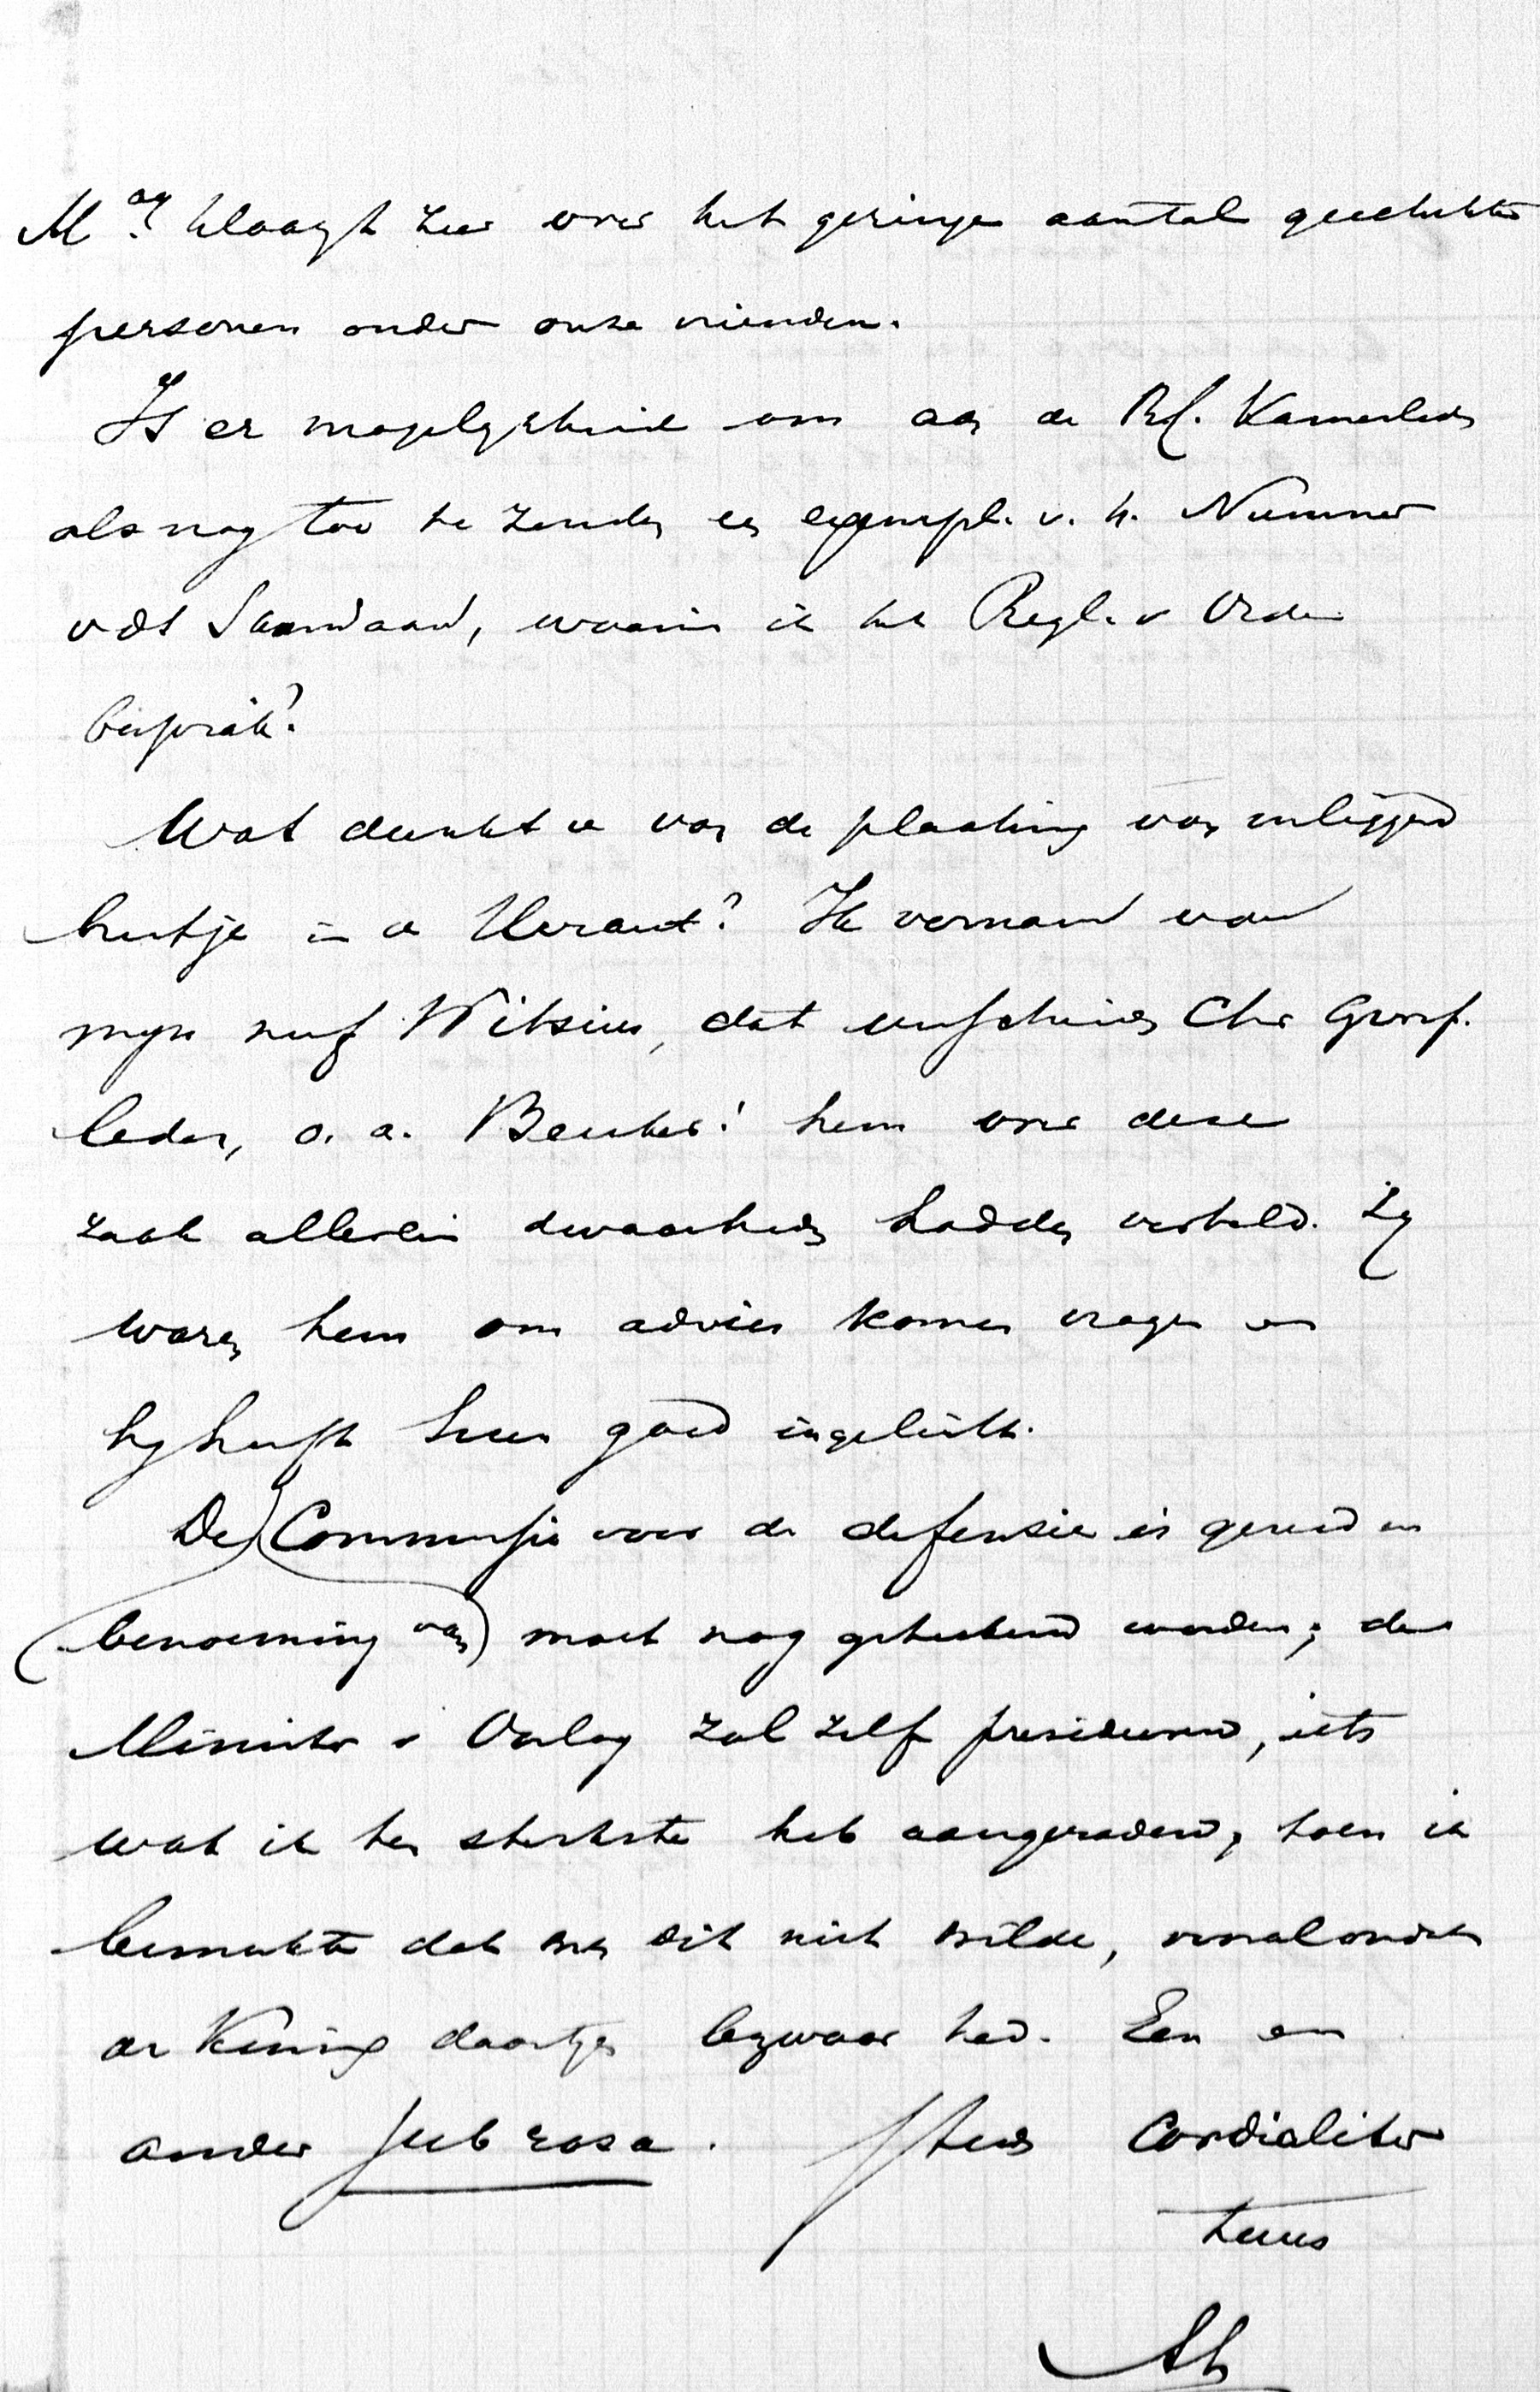 May. klaagt zeer over het geringe aantal geschikte
personen onder onze vrienden.
Is er mogelijkheid om aan de Kamerleden
alsnog toe te zenden een exempl. v. h. Nummer
v d Standaard, waarin ik het Regl. v Orde
besprak?
Wat dunkt u van de plaatsing van inliggend
stukje in de Heraut? Ik vernam van
mijn neef Witsius, dat verscheiden Chr Geref.
leden, o. a. Beuker! hem over deze
zaak allerlei dwaasheden hadden verteld. Zij
waren hem om advies komen vragen en
hij heeft hen goed ingelicht.
De (Commissie voor de defensie is gereed en
(benoeming van) moet nog geteekend worden; de
Minister v Oorlog zal zelf presideeren, iets
wat ik ten sterkste heb aangeraden, toen ik
bemerkte dat men dit niet wilde, vooral omdat
de Koning daartegen bezwaar had. Een en
ander sub rosa. Steeds Cordialiter
tuus